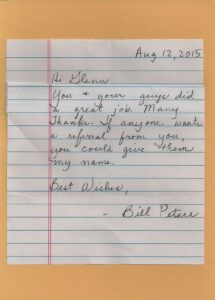 Aug 12, 2015
Hi Glenn
You & your guys did
a great job. Many
Thanks. If anyone wants
a referral from you,
you could give them
my name.
Best Wishes,
- Bill Peters